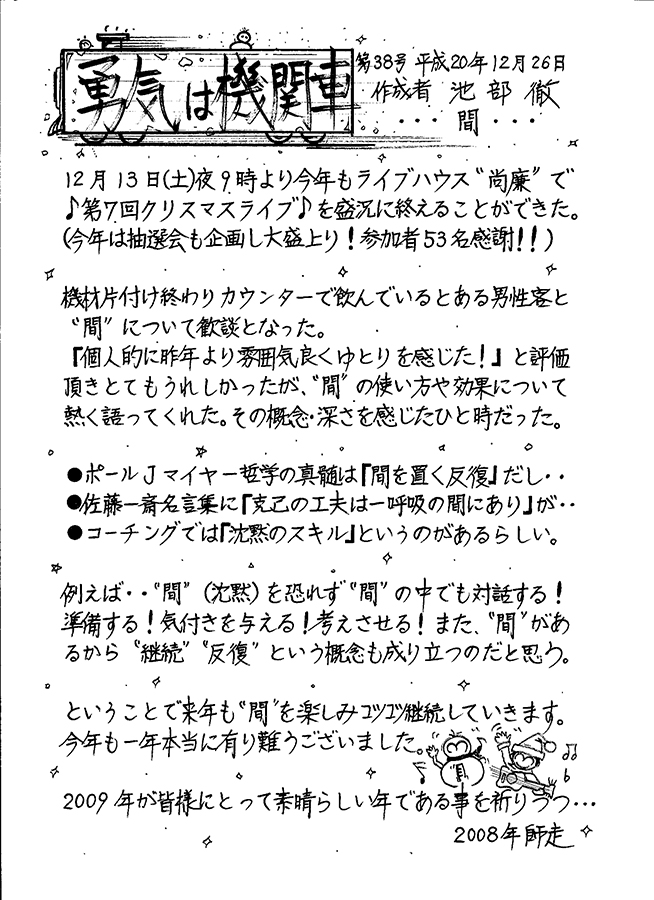 勇気は機関車
第38号 平成20年12月26日
作成者 池部 徹
・・・間・・・
12月13日(土)夜9時より今年もライブハウス“尚廉”で
♪第7回クリスマスライブ♪を盛況に終えることができた。
(今年は抽選会も企画し大盛上り!参加者53名感謝!!)
機材片付け終わりカウンターで飲んでいるとある男性客と
“間”について歓談となった。
『個人的に昨年より雰囲気良くゆとりを感じた!』と評価
頂きとてもうれしかったが、“間”の使い方や効果について
熱く語ってくれた。その概念・深さを感じたひと時だった。
●ポールJマイヤー哲学の真髄は『間を置く反復』だし・・
●佐藤一斎名言集に『克己の工夫は一呼吸の間にあり』が・・
●コーチングでは『沈黙のスキル』というのがあるらしい。
例えば・・“間”(沈黙)を恐れず“間”の中でも対話する!
準備する!気付きを与える!考えさせる!また、“間”があ
るから“継続”“反復”という概念も成り立つのだと思う。
ということで来年も“間”を楽しみコツコツ継続していきます。
今年も一年本当に有り難うございました。
2009年が皆様にとって素晴らしい年である事を祈りつつ・・・
2008年師走